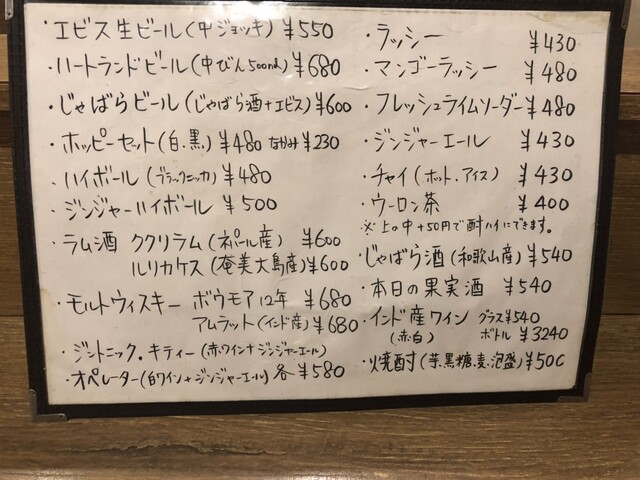 ・エビス生ビール(中ジョッキ) ¥550
・ハートランドビール(中びん500ml) ¥680
・じゃばらビール(じゃばら酒+エビス) ¥600
・ホッピーセット(白・黒) ¥480 なかみ¥230
・ハイボール(ブラックニッカ) ¥480
・ジンジャーハイボール ¥500
・ラム酒 ククリラム(ネパール産) ¥600
ルリカケス(奄美大島産) ¥600
・モルトウィスキー ボウモア12年 ¥680
アムラット(インド産) ¥680
・ジントニック・キティー(赤ワイン+ジンジャーエール)
・オペレーター(白ワイン+ジンジャーエール) 各 ¥580
・ラッシー ¥430
・マンゴーラッシー ¥480
・フレッシュライムソーダー ¥480
・ジンジャーエール ¥430
・チャイ(ホット・アイス) ¥430
・ウーロン茶 ¥400
※上の中+50円で酎ハイにできます。
・じゃばら酒(和歌山産) ¥540
・本日の果実酒 ¥540
・インド産ワイン グラス¥540
(赤・白) ボトル ¥3240
・焼酎(芋、黒糖、麦、泡盛) ¥500